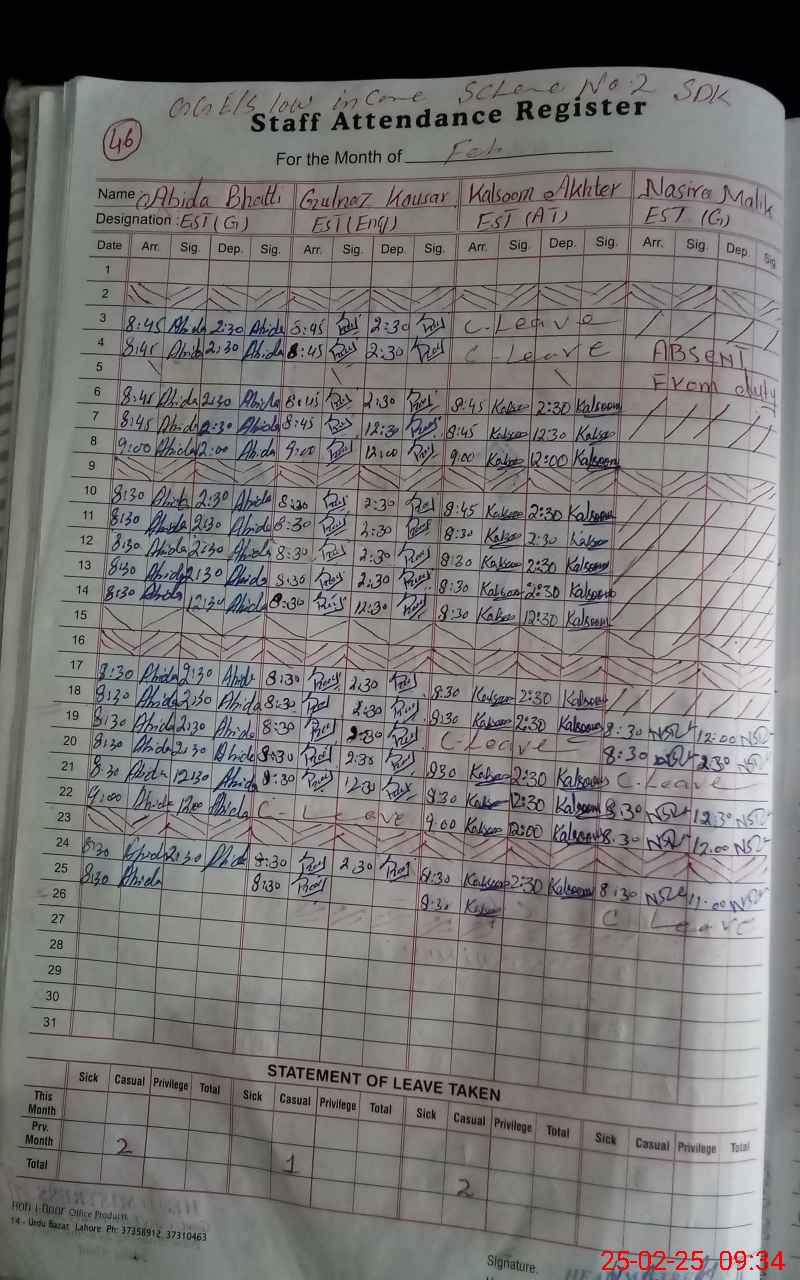 GGE/S low income Scheme No. 2 SDK
Staff Attendance Register
46
For the Month of Feb
Name Abida Bhatti Gulnaz Kousar Kalsoom Akhter Nasira Malik
Designation : EST (G) EST (Eng) EST (AT) EST (G)
Date Arr. Sig. Dep. Sig. Arr. Sig. Dep. Sig. Arr. Sig. Dep. Sig. Arr. Sig. Dep. Sig.
1
2
3 8:45 Abida 2:30 Abida 8:45 2:30 C-Leave
4 8:45 Abida 2:30 Abida 8:45 2:30 C-Leave ABSENT
5 From duty
6 8:45 Abida 2:30 Abida 8:45 2:30 8:45 Kalsoo 2:30 Kalsoom
7 8:45 Abida 2:30 Abida 8:45 12:30 8:45 Kalsoo 12:30 Kalsoo
8 9:00 Abida 2:00 Abida 9:00 12:00 9:00 Kalsoo 12:00 Kalsoom
9
10 8:30 Abida 2:30 Abida 8:30 2:30 8:45 Kalsoo 2:30 Kalsoom
11 8:30 Abida 2:30 Abida 8:30 2:30 8:30 Kalsoo 2:30 Kalsoo
12 8:30 Abida 2:30 Abida 8:30 2:30 8:30 Kalsoo 2:30 Kalsoom
13 8:30 Abida 2:30 Abida 8:30 2:30 8:30 Kalsoo 2:30 Kalsoom
14 8:30 Abida 12:30 Abida 8:30 12:30 8:30 Kalsoo 12:30 Kalsoom
15
16
17 8:30 Abida 2:30 Abida 8:30 2:30 8:30 Kalsoo 2:30 Kalsoom
18 8:30 Abida 2:30 Abida 8:30 2:30 8:30 Kalsoo 2:30 Kalsoom 8:30 12:00
19 8:30 Abida 2:30 Abida 8:30 2:30 C-Leave 8:30 2:30
20 8:30 Abida 2:30 Abida 8:30 2:30 830 Kalsoo 2:30 Kalsoom C-Leave
21 8:30 Abida 12:30 Abida 8:30 12:30 8:30 Kalsoo 12:30 Kalsoom 8:30 12:30
22 9:00 Abida 12:00 Abida C-Leave 9:00 Kalsoo 12:00 Kalsoom 8:30 12:00
23
24 8:30 Abida 2:30 Abida 8:30 2:30 8:30 Kalsoo 2:30 Kalsoom 8:30 11:00
25 8:30 Abida 8:30 8:30 Kalsoo C Leave
26
27
28
29
30
31
STATEMENT OF LEAVE TAKEN
Sick Casual Privilege Total Sick Casual Privilege Total Sick Casual Privilege Total Sick Casual Privilege Total
This Month
Prv. Month 2 1 2
Total
Office Product
14 - Urdu Bazar, Lahore. Ph: 37358912, 37310463
Signature.
25-02-25 09:34